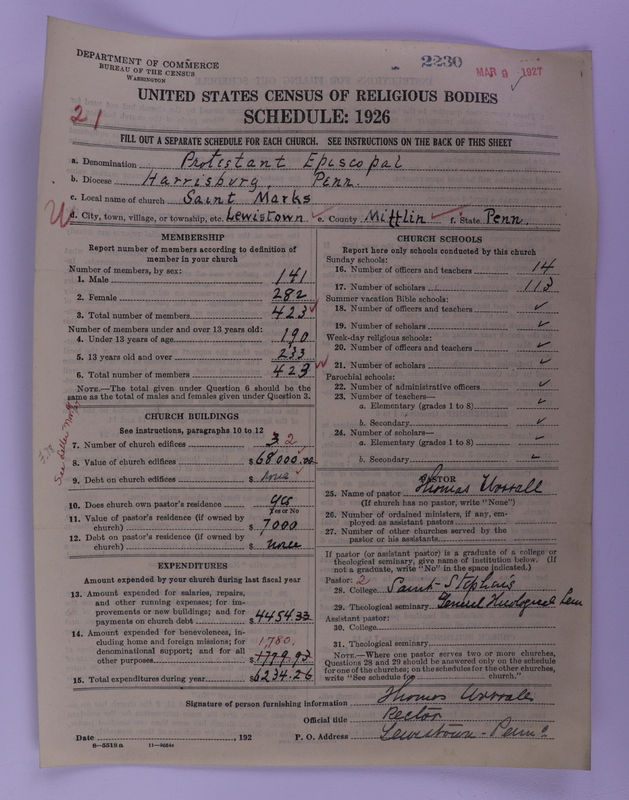 DEPARTMENT OF COMMERCE
BUREAU OF THE CENSUS
WASHINGTON
2230
MAR 9 1927
UNITED STATES CENSUS OF RELIGIOUS BODIES
SCHEDULE: 1926
21
FILL OUT A SEPARATE SCHEDULE FOR EACH CHURCH. SEE INSTRUCTIONS ON THE BACK OF THIS SHEET
a. Denomination Protestant Episcopal
b. Diocese Harrisburg, Penn.
c. Local name of church Saint Marks
d. City, town, village, or township, etc. Lewistown e. County Mifflin f. State Penn.
MEMBERSHIP
Report number of members according to definition of
member in your church
Number of members, by sex:
1. Male 141
2. Female 282
3. Total number of members 423
Number of members under and over 13 years old:
4. Under 13 years of age 190
5. 13 years old and over 233
6. Total number of members 423
NOTE.—The total given under Question 6 should be the
same as the total of males and females given under Question 3.
CHURCH BUILDINGS
See instructions, paragraphs 10 to 12
7. Number of church edifices 3 2
8. Value of church edifices $ 68000.00
9. Debt on church edifices $ none
10. Does church own pastor's residence yes
Yes or No
11. Value of pastor's residence (if owned by
church) $ 7000
12. Debt on pastor's residence (if owned by
church) $ none
See letter
EXPENDITURES
Amount expended by your church during last fiscal year
13. Amount expended for salaries, repairs,
and other running expenses; for im-
provements or new buildings; and for
payments on church debt $ 4454.33
14. Amount expended for benevolences, in-
cluding home and foreign missions; for
denominational support; and for all
other purposes $ 1779.93
1780.
15. Total expenditures during year $ 6234.26
CHURCH SCHOOLS
Report here only schools conducted by this church
Sunday schools:
16. Number of officers and teachers 14
17. Number of scholars 113
Summer vacation Bible schools:
18. Number of officers and teachers ✓
19. Number of scholars ✓
Week-day religious schools:
20. Number of officers and teachers ✓
21. Number of scholars ✓
Parochial schools:
22. Number of administrative officers ✓
23. Number of teachers—
a. Elementary (grades 1 to 8) ✓
b. Secondary ✓
24. Number of scholars—
a. Elementary (grades 1 to 8) ✓
b. Secondary ✓
PASTOR
25. Name of pastor Thomas Worrall
(If church has no pastor, write "None")
26. Number of ordained ministers, if any, em-
ployed as assistant pastors
27. Number of other churches served by the
pastor or his assistants
If pastor (or assistant pastor) is a graduate of a college or
theological seminary, give name of institution below. (If
not a graduate, write "No" in the space indicated.)
Pastor: 2
28. College Saint-Stephens
29. Theological seminary General Theological Sem
Assistant pastor:
30. College
31. Theological seminary
NOTE.—Where one pastor serves two or more churches,
Questions 28 and 29 should be answered only on the schedule
for one of the churches; on the schedules for the other churches,
write "See schedule for church."
Signature of person furnishing information Thomas Worrall
Official title Rector
Date , 192 P. O. Address Lewistown - Penna
8—5518a 11—9684a